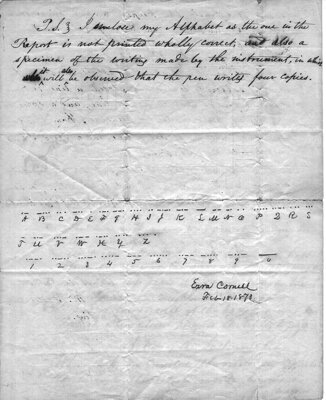 P.S. I enclose my Alphabet as the one in the
Report is not printed wholly correct, and also a
specimen of the writing made by the instrument, in which
it will be observed that the pen writes four copies.
A B C D E F G H I J K L M N O P Q R S
T U V W X Y Z
1 2 3 4 5 6 7 8 9 0
Ezra Cornell
Feb.